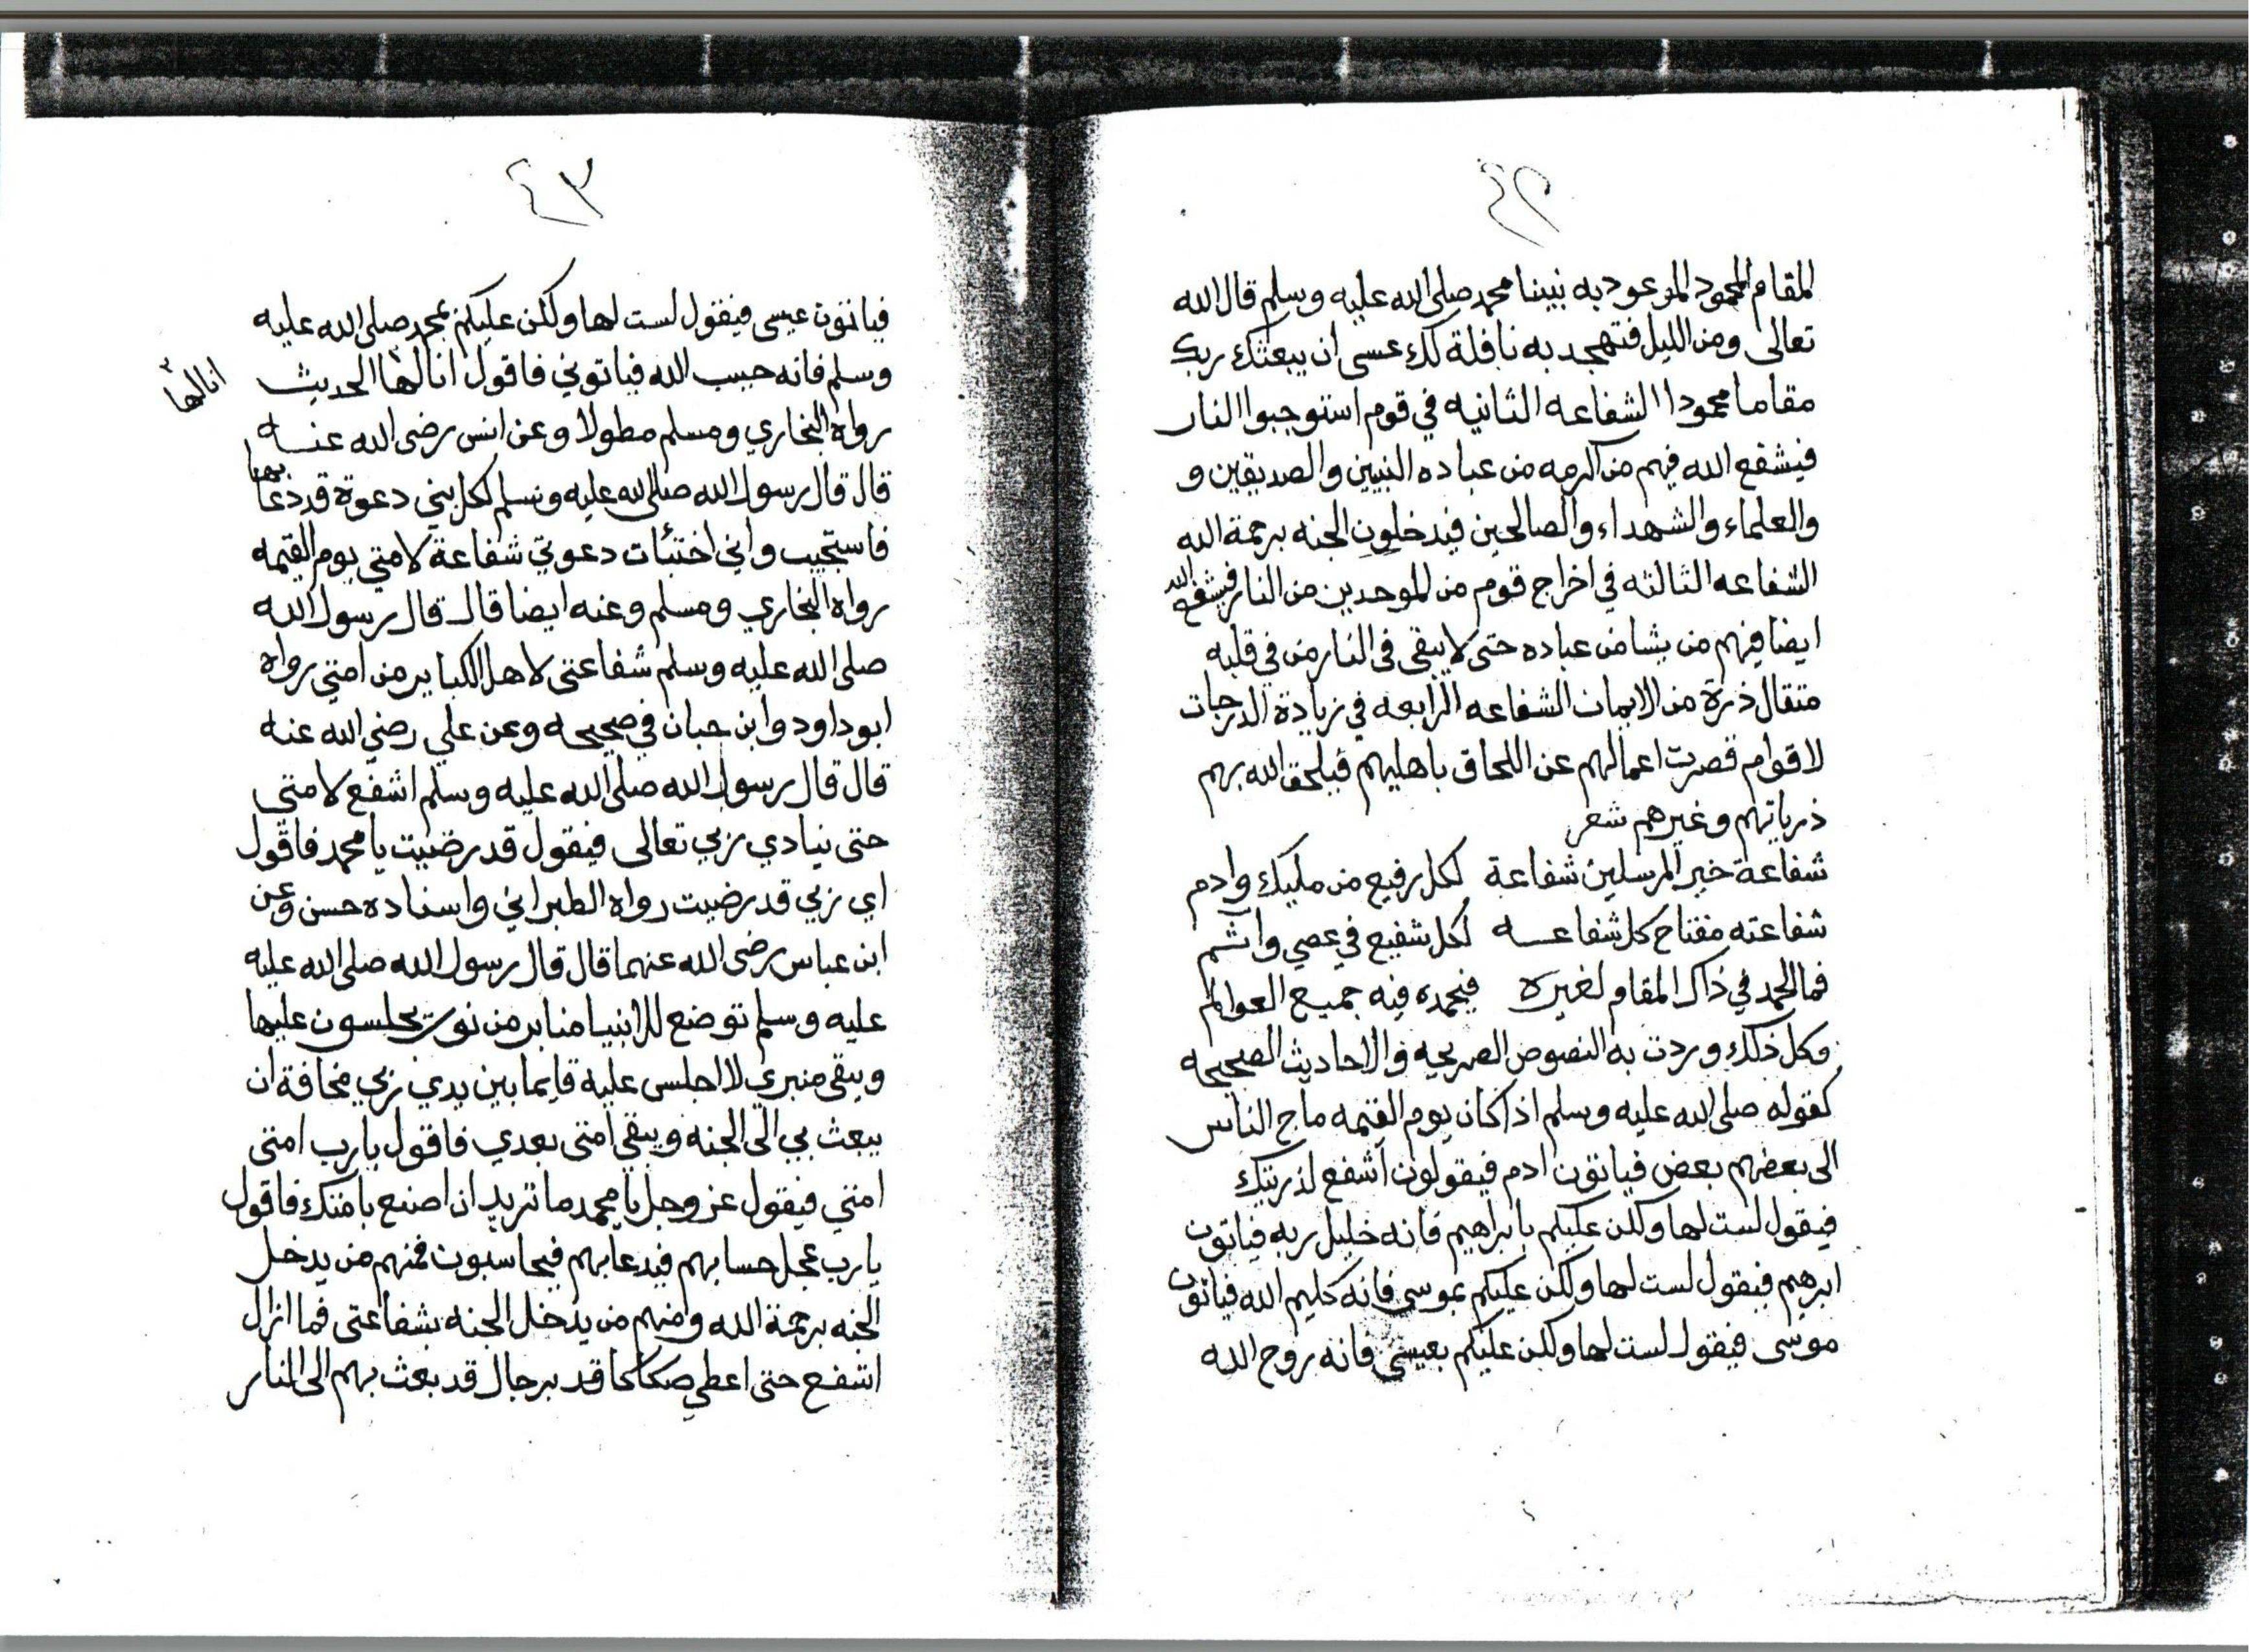 ٤٢
المقام المحمود الموعود به نبينا محمد صلى الله عليه وسلم قال الله
تعالى ومن الليل فتهجد به نافلة لك عسى ان يبعثك ربك
مقاما محمودا الشفاعه الثانيه في قوم استوجبوا النار
فيشفع الله فيهم من اكرمه من عباده النبيين والصديقين و
والعلماء والشهداء والصالحين فيدخلون الجنه برحمة الله
الشفاعه الثالثه في اخراج قوم من الموحدين من النار فيشفع الله
ايضا فيهم من يشا من عباده حتى لا يبقى في النار من في قلبه
مثقال ذرة من الايمان الشفاعه الرابعه في زيادة الدرجات
لاقوام قصرت اعمالهم عن اللحاق باهليهم فيلحق الله بهم
ذرياتهم وغيرهم شعر
شفاعة خير المرسلين شفاعة لكل رفيع من مليك وادم
شفاعته مفتاح كل شفاعه لكل شفيع في عصي واثم
فما الحمد في ذاك المقام لغيره فيحمده فيه جميع العوالم
وكل ذلك وردت به النصوص الصريحه والاحاديث الصحيحه
كقوله صلى الله عليه وسلم اذا كان يوم القيمه ماج الناس
الى بعضهم بعض فياتون ادم فيقولون اشفع لذريتك
فيقول لست لها ولكن عليكم بابراهيم فانه خليل ربه فياتون
ابرهيم فيقول لست لها ولكن عليكم بموسى فانه كليم الله فياتون
موسى فيقول لست لها ولكن عليكم بعيسى فانه روح الله
٤٣
فياتون عيسى فيقول لست لها ولكن عليكم بمحمد صلى الله عليه
وسلم فانه حبيب الله فياتوني فاقول انا لها الحديث
انا لها
رواه البخاري ومسلم مطولا وعن انس رضى الله عنه
قال قال رسول الله صلى الله عليه وسلم لكل نبي دعوة قد دعا بها
فاستجيب واني اختبئات دعوتي شفاعة لامتي يوم القيمه
رواه البخاري ومسلم وعنه ايضا قال قال رسول الله
صلى الله عليه وسلم شفاعتى لاهل الكباير من امتي رواه
ابو داود وابن حبان في صحيحه وعن علي رضي الله عنه
قال قال رسول الله صلى الله عليه وسلم اشفع لامتى
حتى ينادي ربي تعالى فيقول قد رضيت يا محمد فاقول
اي ربي قد رضيت رواه الطبراني واسناده حسن وعن
ابن عباس رضى الله عنهما قال قال رسول الله صلى الله عليه
عليه وسلم توضع للانبيا منابر من نور يجلسون عليها
ويبقى منبري لا اجلس عليه قايما بين يدي ربي مخافة ان
يبعث بي الى الجنه ويبقى امتى بعدي فاقول يارب امتى
امتي فيقول عز وجل يا محمد ما تريد ان اصنع بامتك فاقول
يارب عجل حسابهم فيدعا بهم فيحاسبون فمنهم من يدخل
الجنه برحمة الله ومنهم من يدخل الجنه بشفاعتى فما ازال
اشفع حتى اعطي صكاكا قد برجال قد بعث بهم الى النار